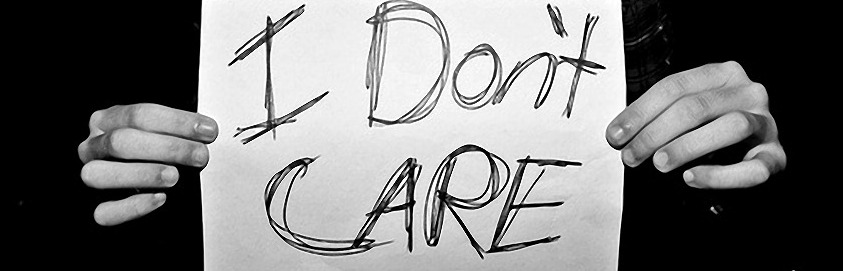 I Don't
CARE